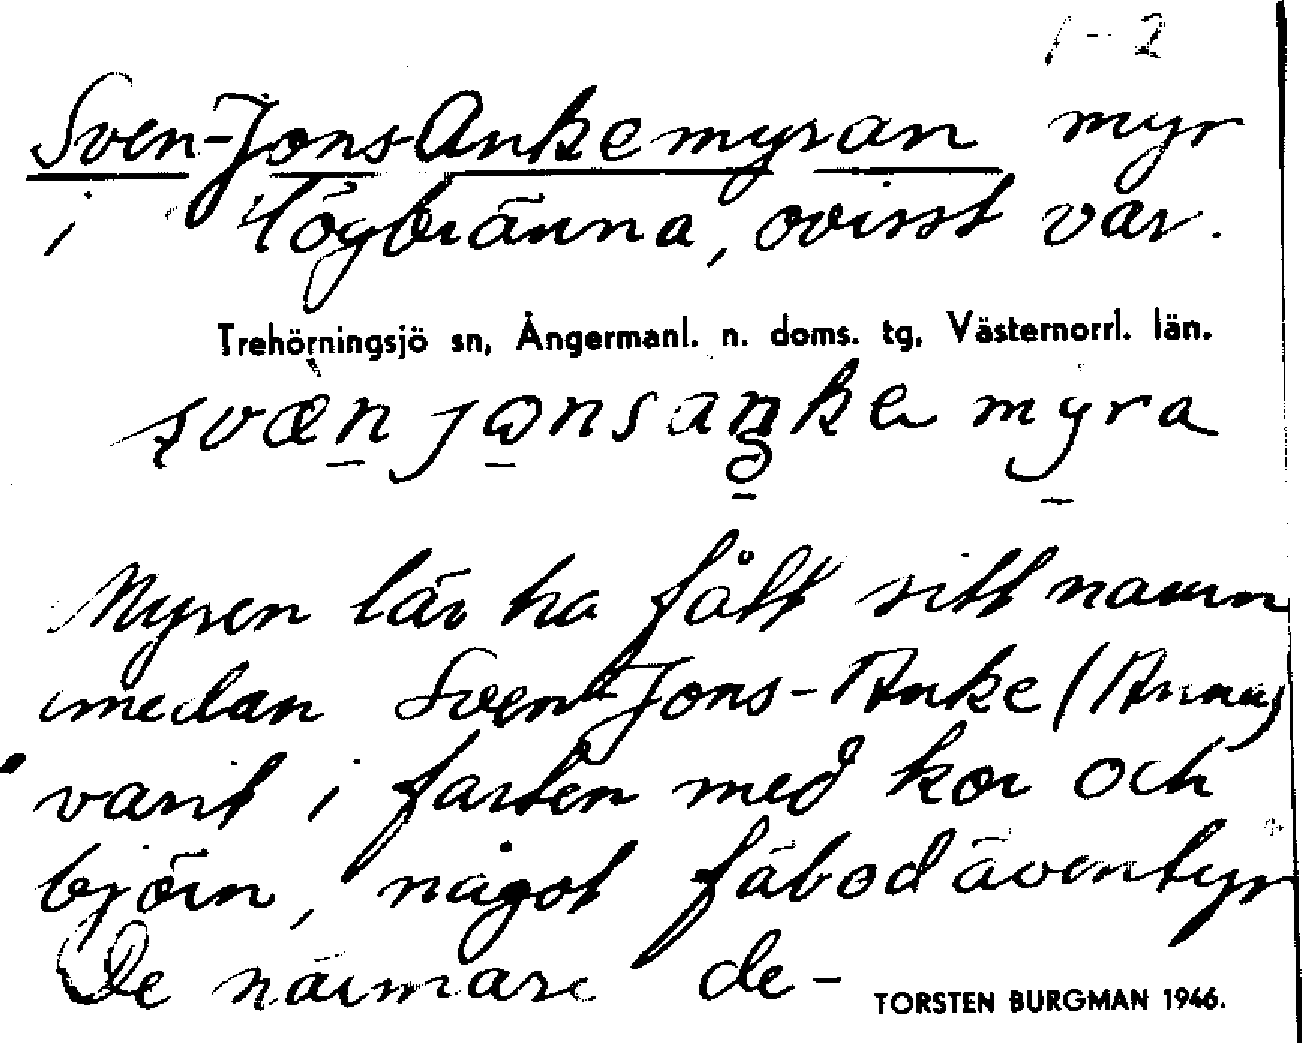 1-2
Sven-Jons-Ankemyran myr
i Högbränna, ovisst var.
Trehörningsjö sn, Ångermanl. n. doms. tg, Västernorrl. län.
myra
Myren lär ha fått sitt namn
medan Sven-Jons-Anke (Anna)
varit i farten med kor och
björn, något fäbodäventyr
De närmare de-
TORSTEN BURGMAN 1946.